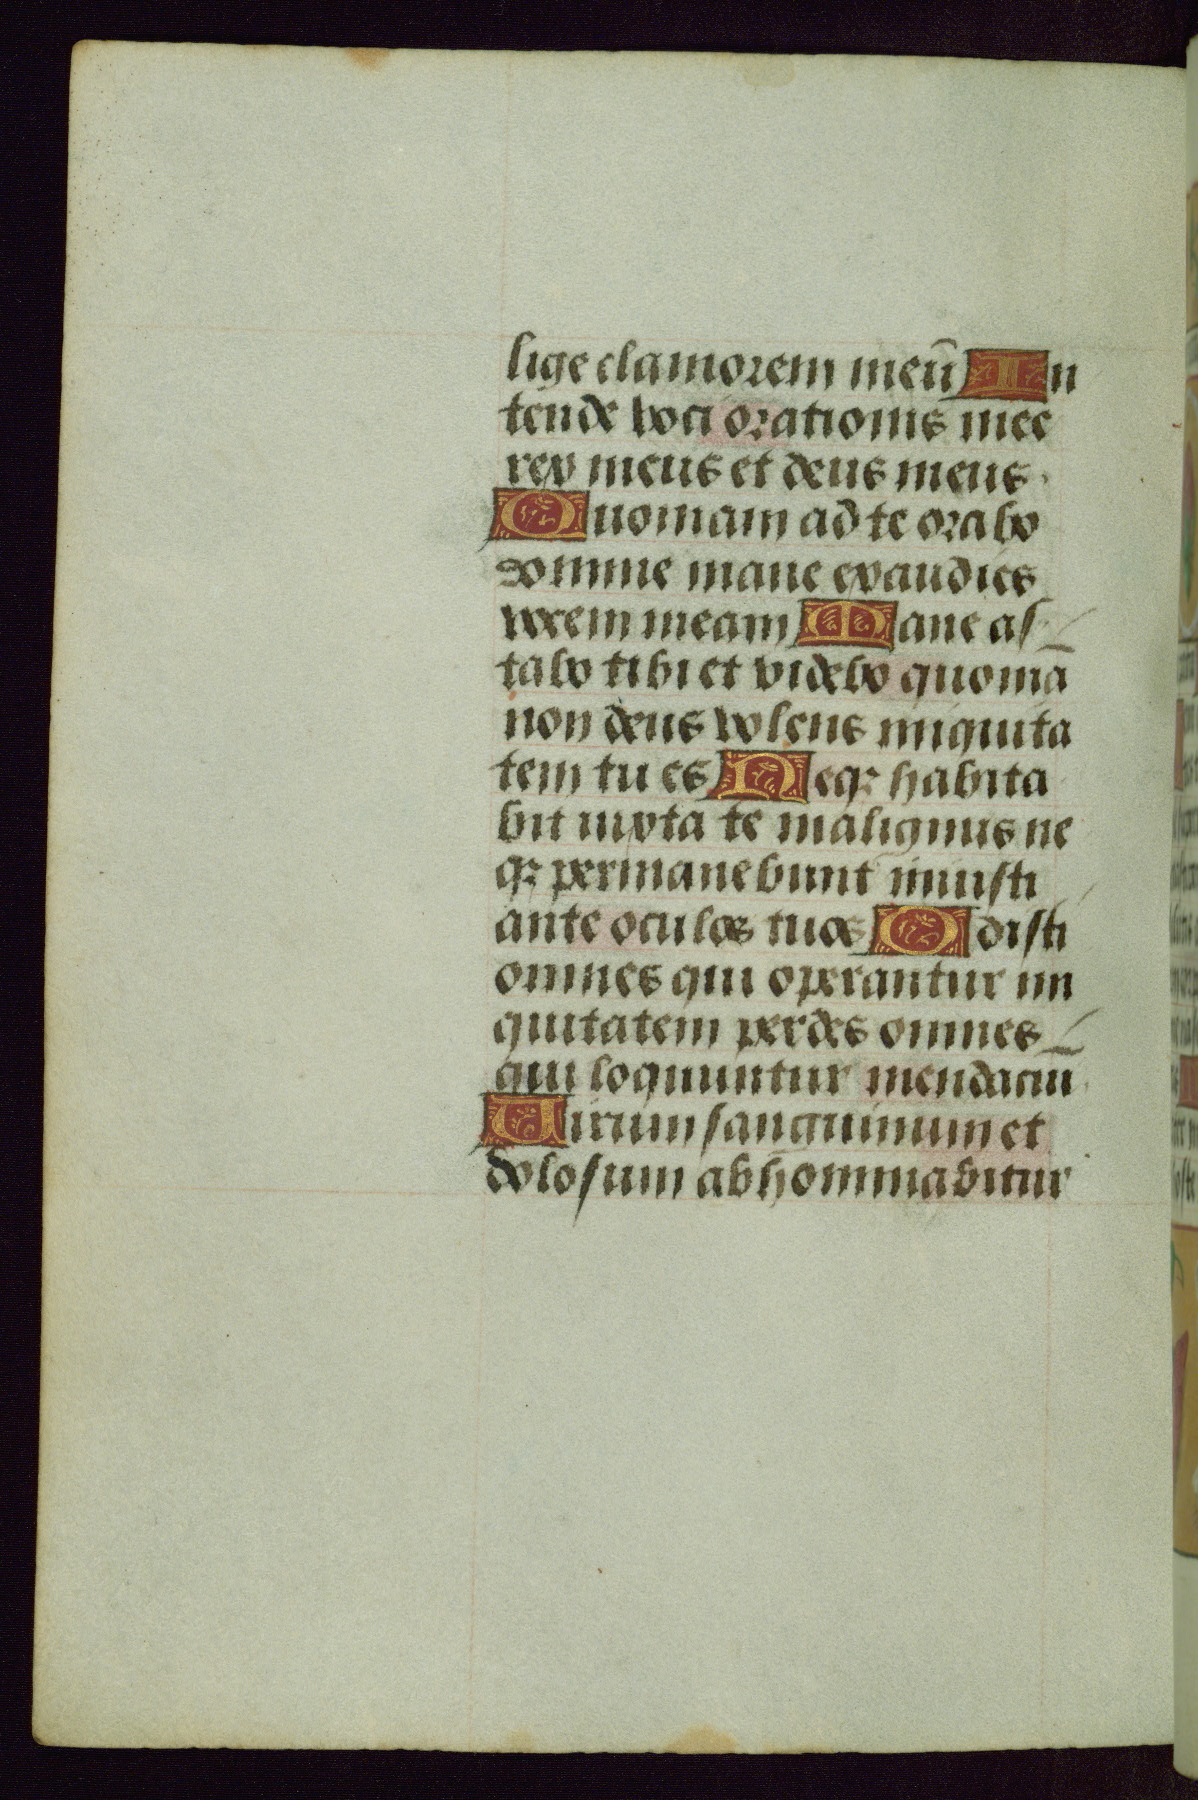 lige clamorem meū In
tende voci orationis mee
rex meus et deus meus
Quoniam ad te orabo
domine mane exaudies
vocem meam Mane as
tabo tibi et videbo quonia
non deus volens iniquita
tem tu es Neqꝫ habita
bit iuxta te malignus ne
qꝫ permanebunt iniusti
ante oculos tuos Odisti
omnes qui operantur ini
quitatem perdes omnes
qui loquuntur mendaciu
Uirum sanguinum et
dolosum abhominabitur